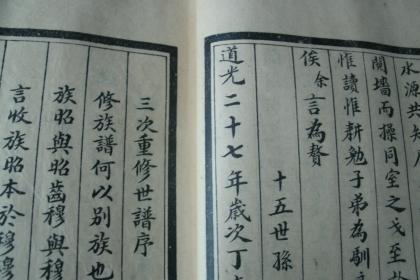 水源共知
鬩墻而操同室之戈至
惟讀惟耕勉子弟為馴
俟余言為贅
十五世孫
道光二十七年歲次丁
三次重修世譜序
修族譜何以別族也
族昭與昭齒穆與穆
言收族昭本於穆穆